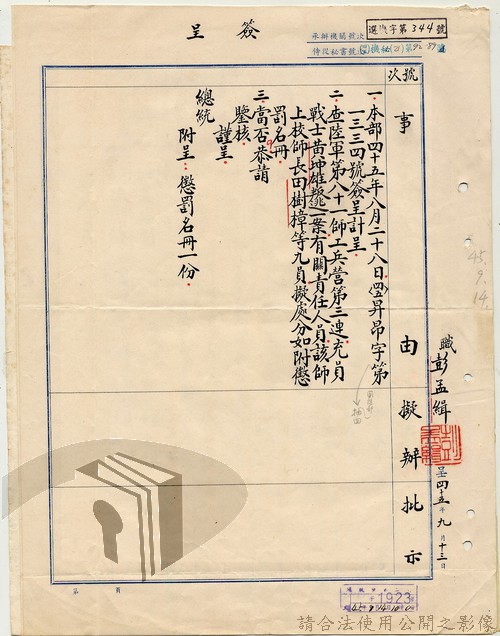 簽呈
選決字第344號
次號關機辦承
號書秘從侍
號次
事由
擬辦
批示
職彭孟緝
呈四十五年九月十三日
一、本部四十五年八月二十八日昇昂字第
一三三四號簽呈計呈。
二、查陸軍第八十一師工兵營第三連充員
戰士黃坤雄叛逃一案有關責任人員該師
上校師長田樹樟等九員擬處分如附懲
罰名冊
三、當否恭請
鑒核。
謹呈
總統
附呈：懲罰名冊一份。
45.9.14.
第 頁
1923
請合法使用公開之影像